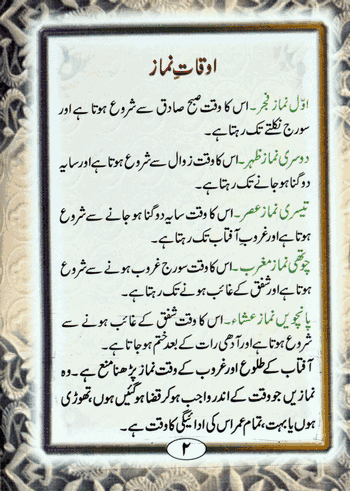 اوقاتِ نماز
اوّل نماز فجر۔ اس کا وقت صبح صادق سے شروع ہوتا ہے اور
سورج نکلتے تک رہتا ہے۔
دوسری نماز ظہر۔ اس کا وقت زوال سے شروع ہوتا ہے اور سایہ
دوگنا ہو جانے تک رہتا ہے۔
تیسری نماز عصر۔ اس کا وقت سایہ دوگنا ہو جانے سے شروع
ہوتا ہے اور غروب آفتاب تک رہتا ہے۔
چوتھی نماز مغرب۔ اس کا وقت سورج غروب ہونے سے شروع
ہوتا ہے اور شفق کے غائب ہونے تک رہتا ہے۔
پانچویں نماز عشاء۔ اس کا وقت شفق کے غائب ہونے سے
شروع ہوتا ہے اور آدھی رات کے بعد ختم ہو جاتا ہے۔
آفتاب کے طلوع اور غروب کے وقت نماز پڑھنا منع ہے۔ وہ
نمازیں جو وقت کے اندر واجب ہو کر قضا ہو گئیں ہوں، تھوڑی
ہوں یا بہت، تمام عمر اس کی ادائیگی کا وقت ہے۔
۲